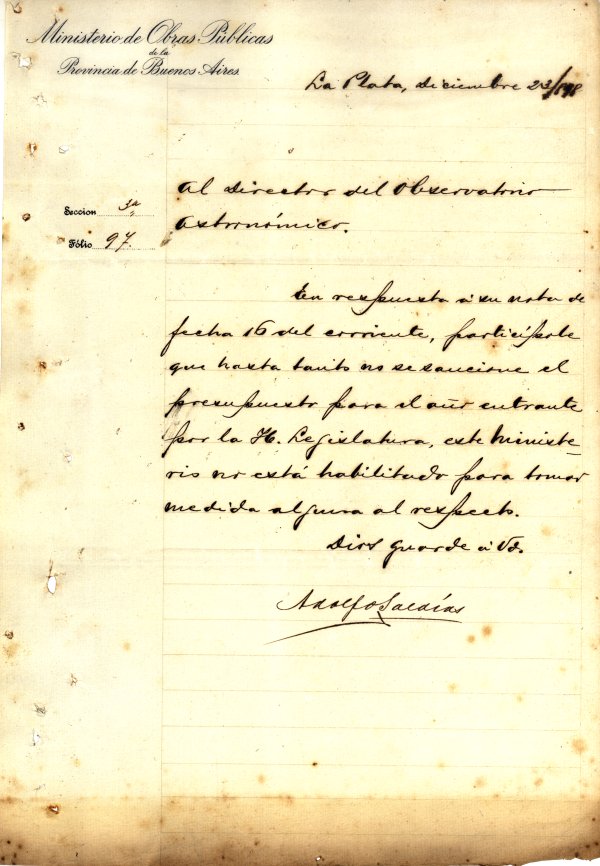 Ministerio de Obras Públicas
de la
Provincia de Buenos Aires
La Plata, diciembre 23/898
Seccion 3a
Fólio 97.
Al Director del Observatorio
Astronómico.
En respuesta á su nota de
fecha 16 del corriente, participole
que hasta tanto no se sancione el
presupuesto para el año entrante
por la H. Legislatura, este Ministe-
rio no está habilitado para tomar
medida alguna al respecto.
Dios guarde á Vd.
Adolfo Saldías